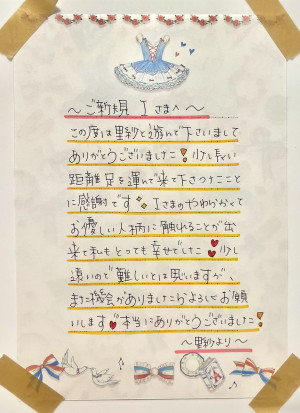 〜ご新規 Iさまへ〜
この度は里紗と遊んで下さいまして
ありがとうございました❗少し長い
距離足を運んで来て下さったこと
に感謝です✨Iさまのやわらかくて
お優しい人柄に触れることが出
来て私もとっても幸せでした❤少し
遠いので難しいとは思いますが、
また機会がありましたらよろしくお願
いします❤本当にありがとうございました❗
〜里紗より〜